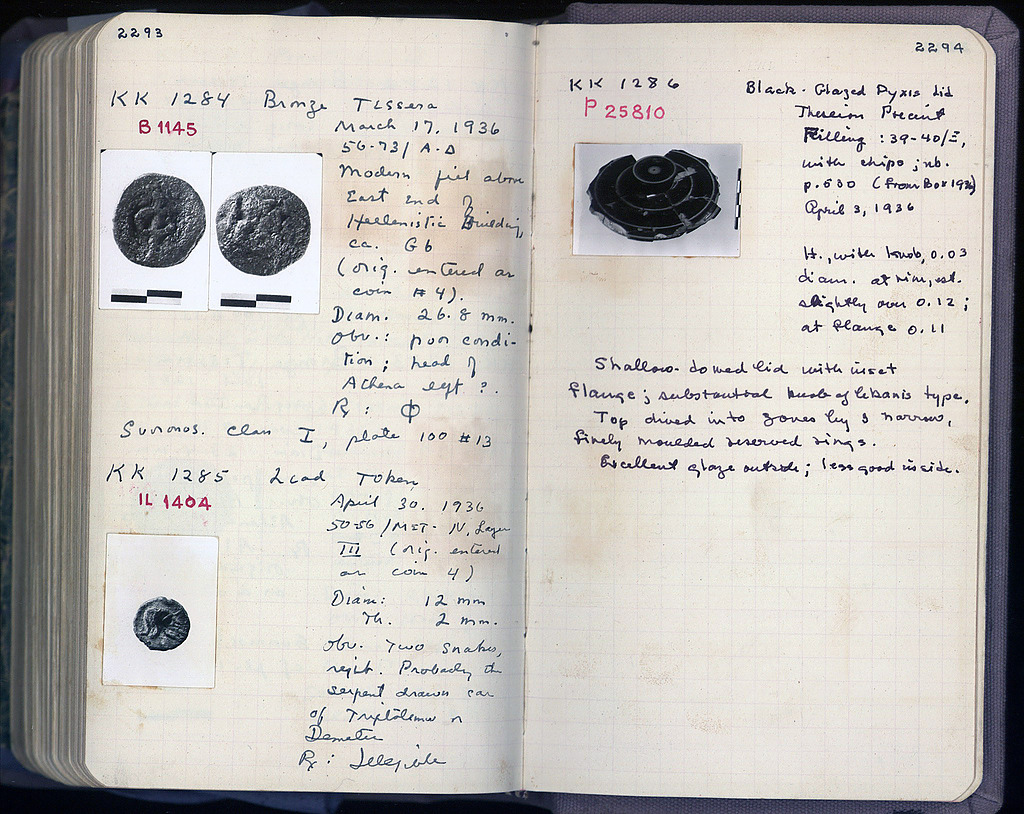 2293
KK 1284 Bronze Tessera
B 1145
March 17, 1936
56-73/ A-Δ
Modern fill above
East end of
Hellenistic Building,
ca. G 6
(orig. entered as
coin #4).
Diam. 26.8 mm.
Obv.: poor condi-
tion; head of
Athena left ?.
Rx: Φ
Svoronos. Class I, plate 100 #13
KK 1285 Lead Token
IL 1404
April 30. 1936
50-56 / N, Layer
III (orig. entered
as coin 4)
Diam: 12 mm
Th. 2 mm.
Obv. Two snakes,
right. Probably the
serpent drawn car
of Triptolemos or
Demeter
Rx: Illegible
2294
KK 1286
P 25810
Black-Glazed Pyxis Lid
Thesion Precinct
Filling: 39-40/Ξ,
with chips; nb.
p. 600 (from Box 192)
April 3, 1936
H., with knob, 0.03
diam. at rim, est.
slightly over 0.12;
at flange 0.11
Shallow-domed lid with inset
flange; substantial knob of lekanis type.
Top dived into zones by 3 narrow,
finely moulded reserved rings.
Excellent glaze outside; less good inside.